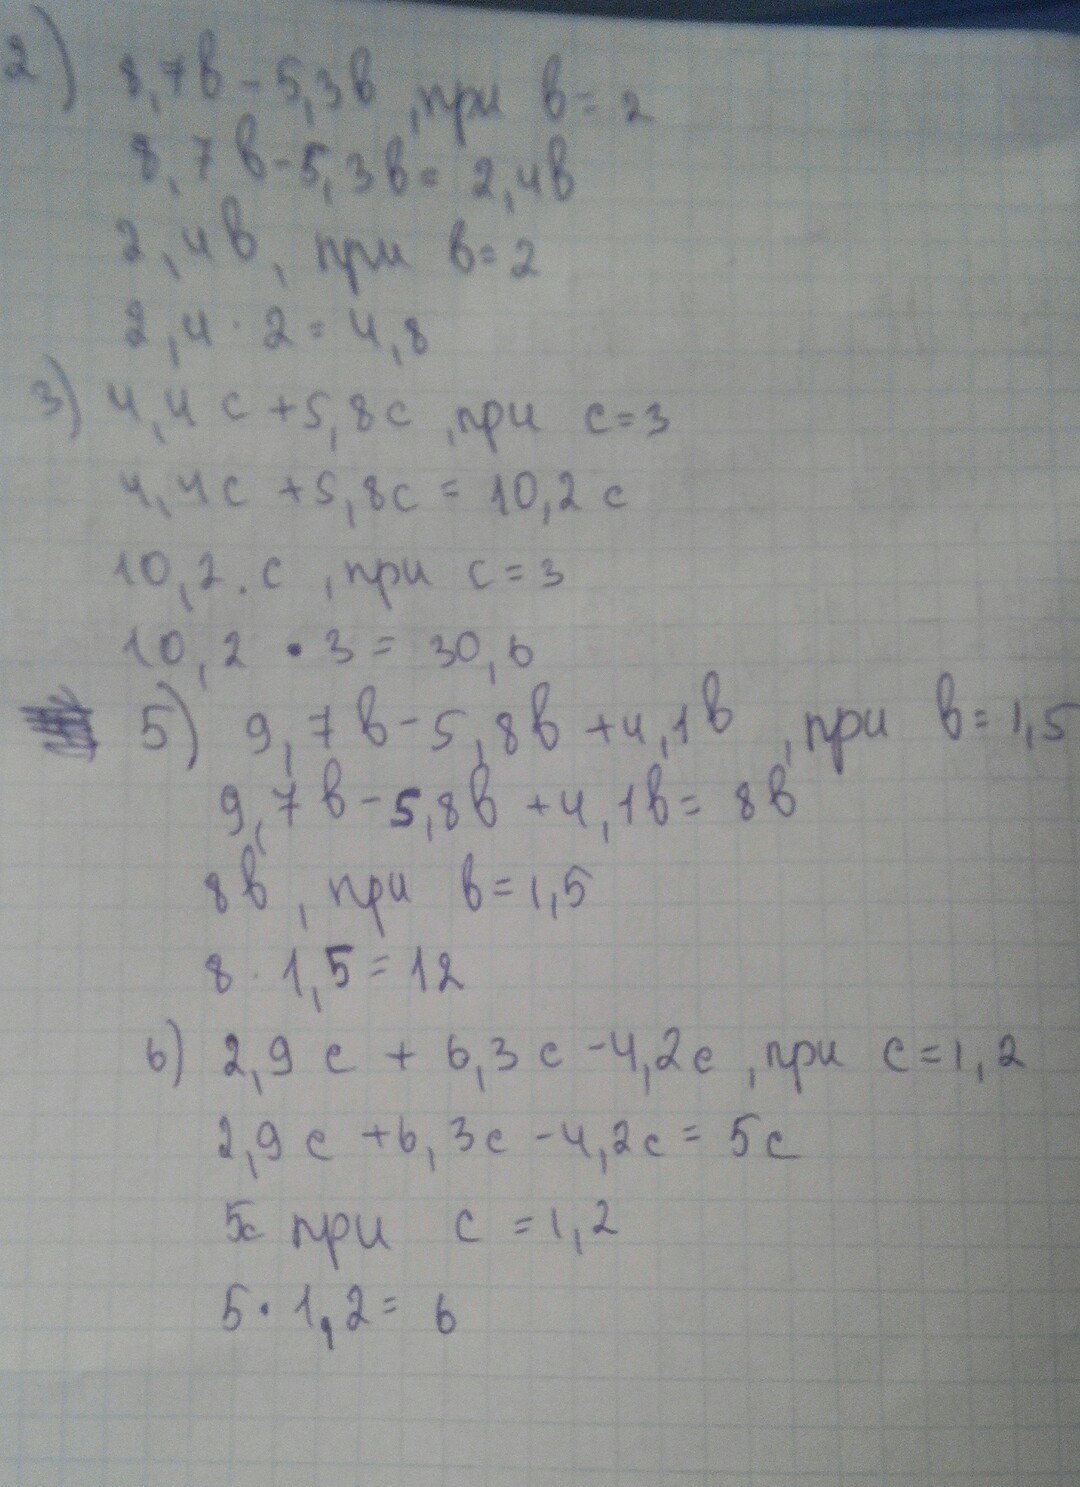 2) 8,7в - 5,3в , при в = 2
8,7в - 5,3в = 2,4в
2,4в, при в = 2
2,4 · 2 = 4,8
3) 4,4с + 5,8с , при с = 3
4,4с + 5,8с = 10,2с
10,2 . с , при с = 3
10,2 · 3 = 30,6
5) 9,7в - 5,8в + 4,1в , при в = 1,5
9,7в - 5,8в + 4,1в = 8в
8в , при в = 1,5
8 · 1,5 = 12
6) 2,9с + 6,3с - 4,2с , при с = 1,2
2,9с + 6,3с - 4,2с = 5с
5с при с = 1,2
5 · 1,2 = 6